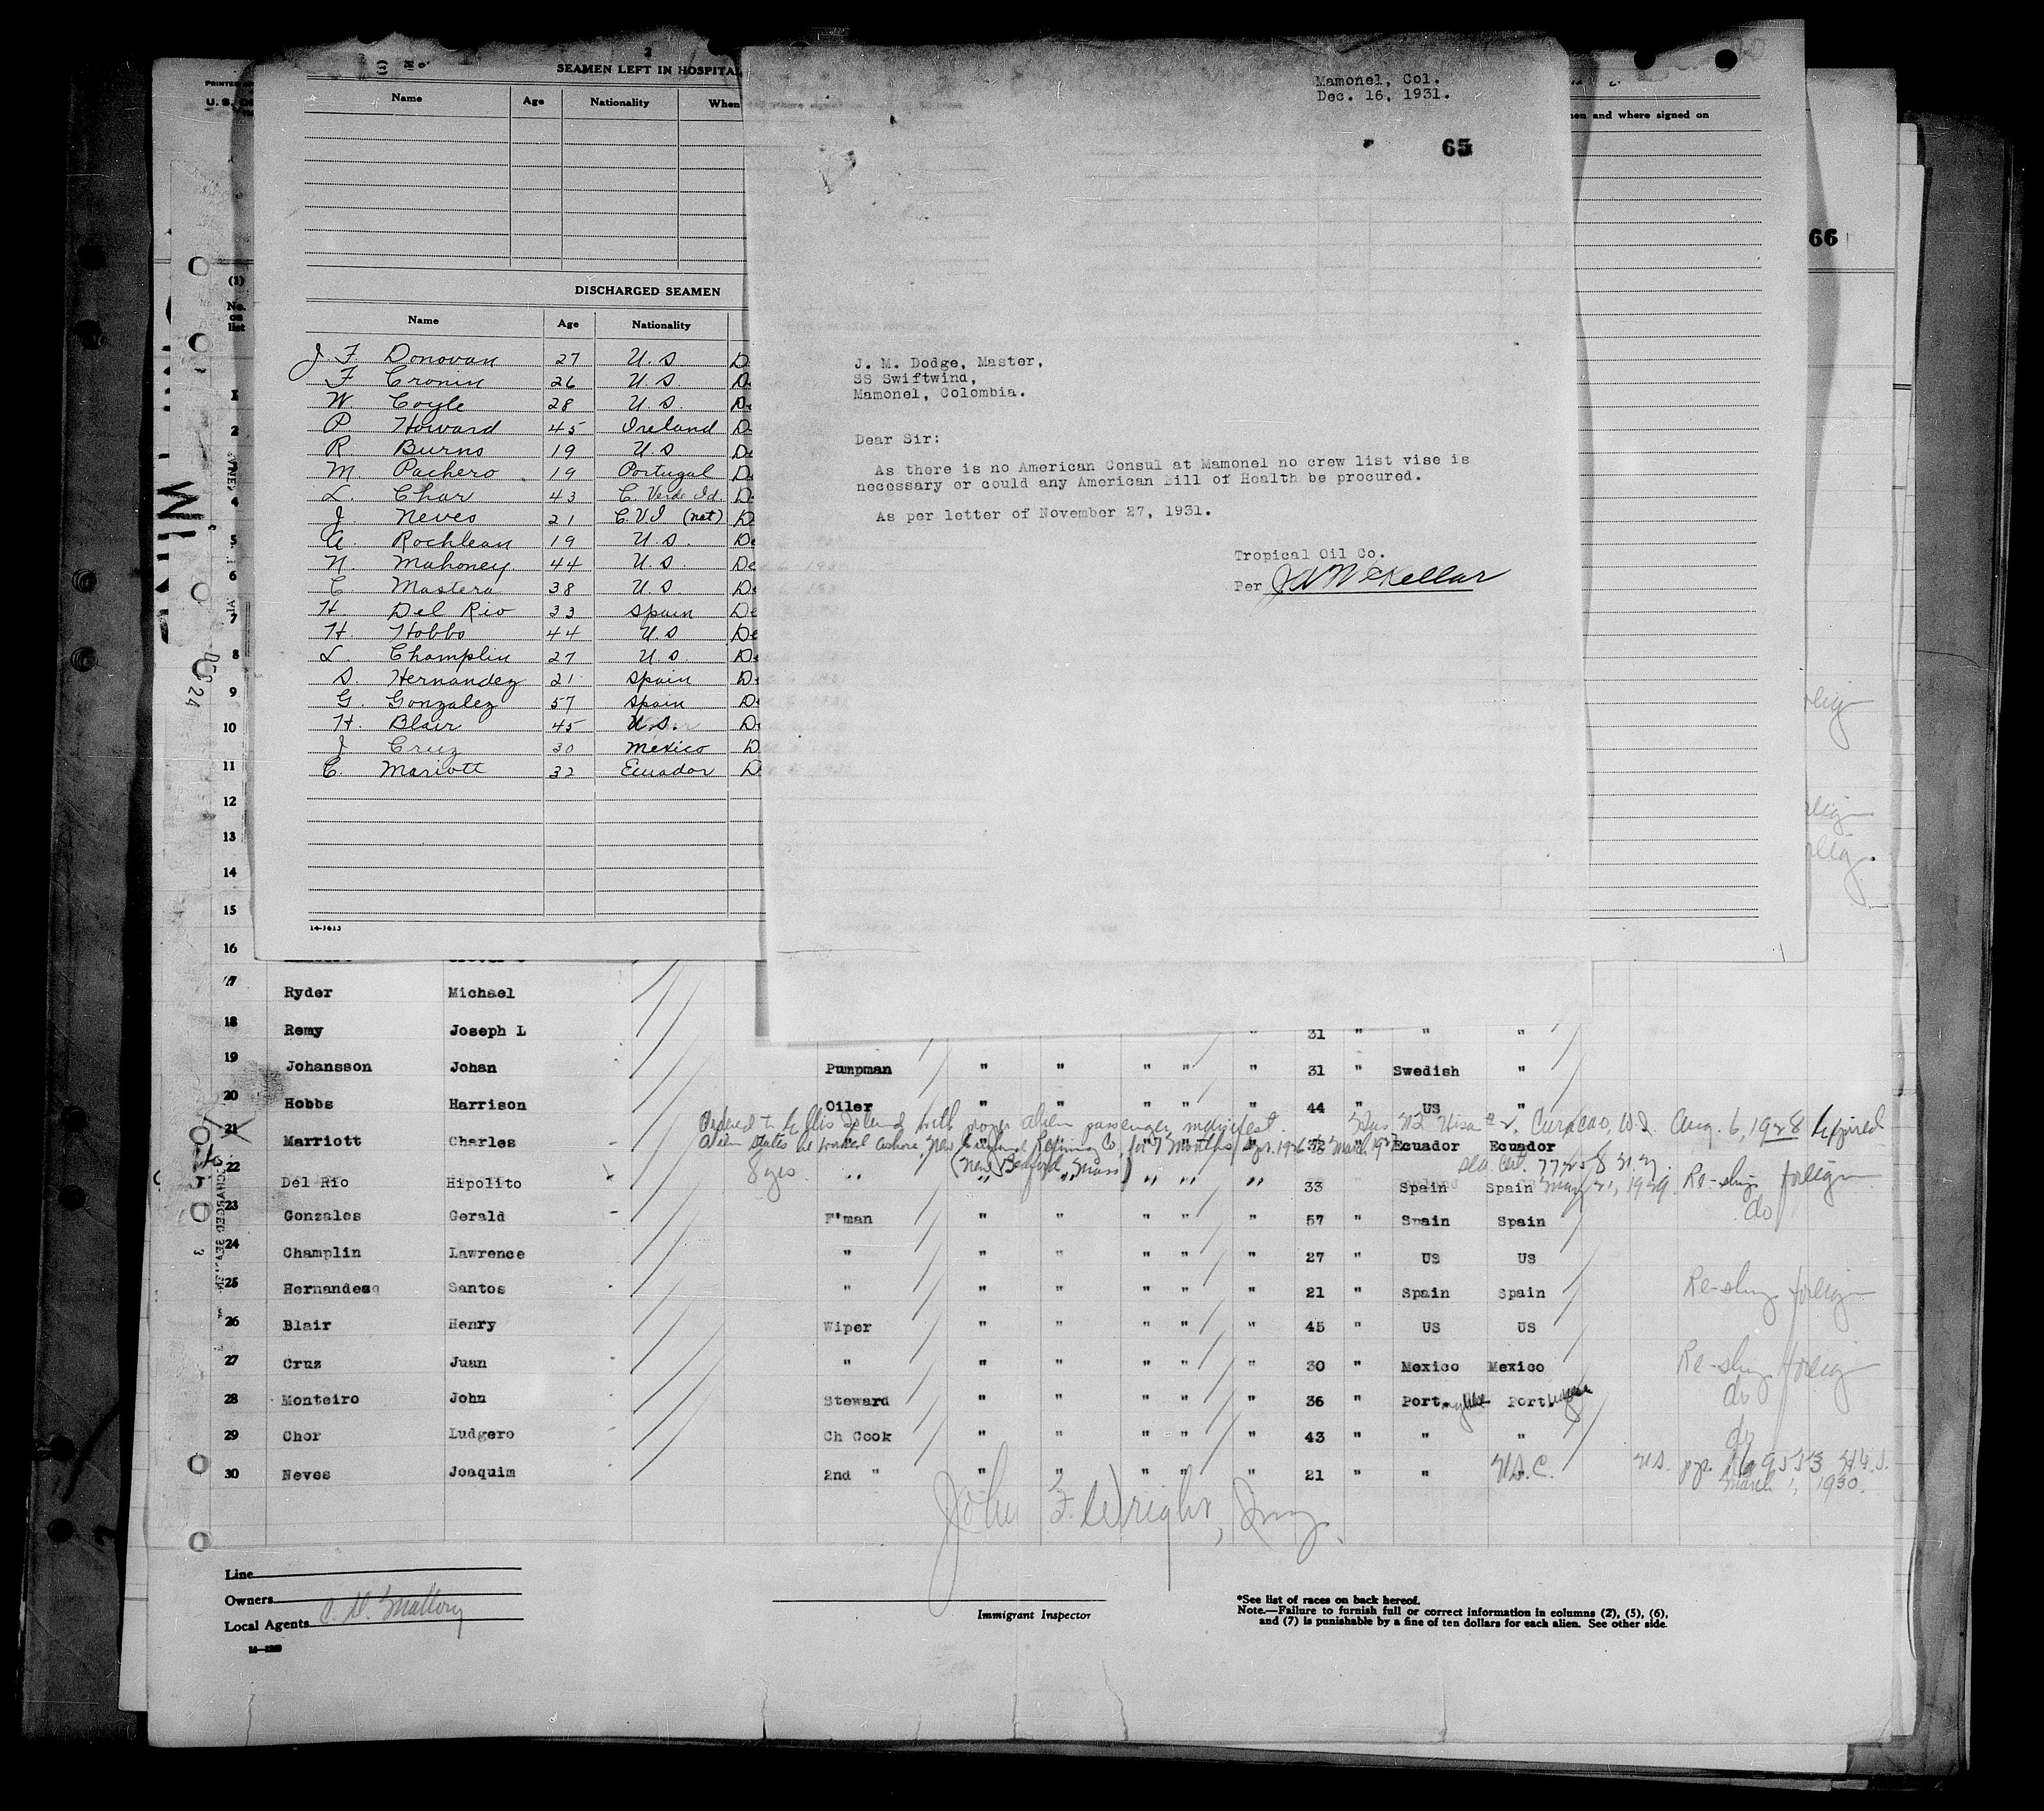 SEAMEN LEFT IN HOSPITAL
Name Age Nationality When
DISCHARGED SEAMEN
Name Age Nationality
J F Donovan 27 U.S
F Cronin 26 U.S.
W. Coyle 28 U.S.
P Howard 45 Ireland
R. Burns 19 U.S
M. Pachero 19 Portugal
L. Char 43 C. Verde Id.
J. Neves 21 C.V.I (nat)
A. Rochleau 19 U.S.
N. Mahoney. 44 U.S.
C. Mastera 38 U.S.
H Del Rio 33 Spain
H. Hobbs 44 U.S
L. Champlin 27 U.S.
S. Hernandez 21 Spain
G. Gonzalez 57 Spain
H. Blair 45 U.S.
J Cruz 30 Mexico
C. Mariott 32 Ecuador
14-1613
Mamonel, Col.
Dec. 16, 1931.
65
J. M. Dodge, Master,
SS Swiftwind,
Mamonel, Colombia.
Dear Sir:
As there is no American Consul at Mamonel no crew list vise is
necessary or could any American Bill of Health be procured.
As per letter of November 27, 1931.
Tropical Oil Co.
Per J A McKellar
and where signed on
66
(1)
No. on list
1
2
4
5
6
7
8
9
10
11
12
13
14
15
16
17 Ryder Michael
18 Remy Joseph L 31 " " "
19 Johansson Johan Pumpman " " " " " 31 " Swedish "
20 Hobbs Harrison Oiler " " " " " 44 " US "
Ordered to Ellis Island with proper alien passenger manifest. Visa Curacao, W.I. Aug. 6, 1928 Expired
21 Marriott Charles " 32 " Ecuador Ecuador
Alien states he worked ashore, New England Refining Co. for 7 months
8 yrs (New Bedford, Mass)
22 Del Rio Hipolito " " " " " " 33 Spain Spain Re-ship foreign
23 Gonzales Gerald F'man " " " " " 57 " Spain Spain do
24 Champlin Lawrence " " " " " " 27 " US US
25 Hernandes Santos " " " " " " 21 " Spain Spain Re-ship foreign
26 Blair Henry Wiper " " " " " 45 " US US
27 Cruz Juan " " " " " " 30 " Mexico Mexico Re-ship foreign
28 Monteiro John Steward " " " " " 36 " Port. Port do
29 Chor Ludgero Ch Cook " " " " " 43 " " " do
30 Neves Joaquim 2nd " " " " " " 21 " " U.S.C. U.S.
March 1, 1930.
John F. Wright, Insp.
Line
Owners
Local Agents C. D. Mallory
Immigrant Inspector
*See list of races on back hereof.
Note.—Failure to furnish full or correct information in columns (2), (5), (6),
and (7) is punishable by a fine of ten dollars for each alien. See other side.